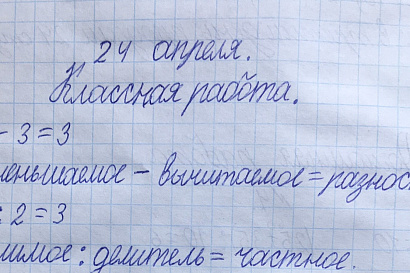 24 апреля.
Классная работа.
- 3 = 3
меньшаемое - вычитаемое = разнос
: 2 = 3
лимое : делитель = частное.